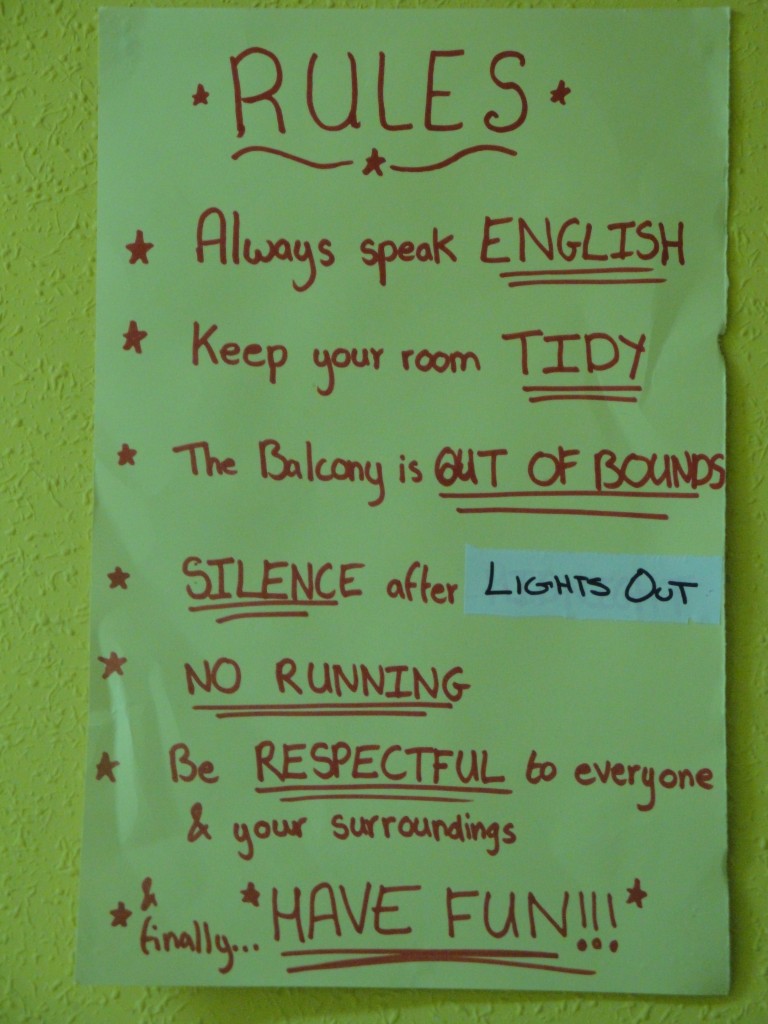 RULES
Always speak ENGLISH
Keep your room TIDY
The Balcony is OUT OF BOUNDS
SILENCE after LIGHTS OUT
NO RUNNING
Be RESPECTFUL to everyone
& your surroundings
& finally... HAVE FUN!!!